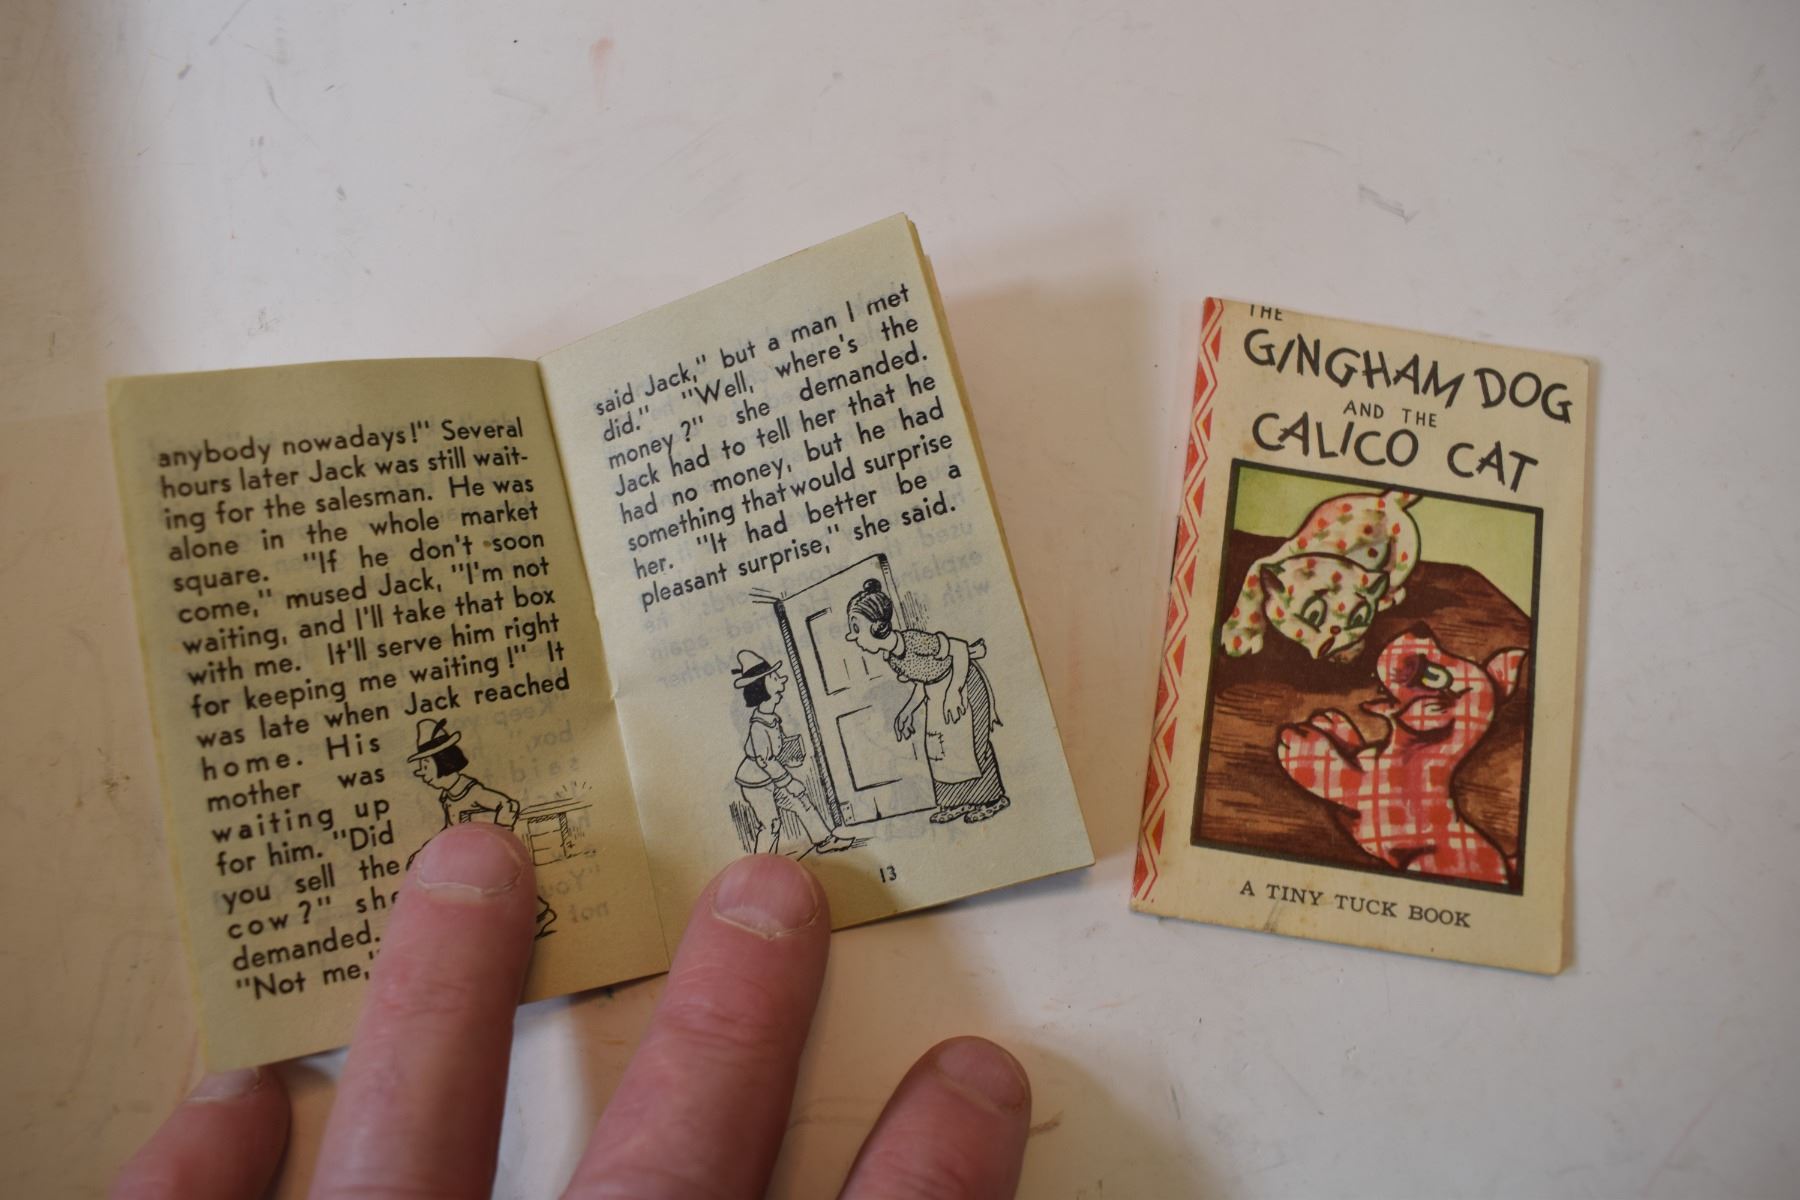 anybody nowadays!" Several
hours later Jack was still wait-
ing for the salesman. He was
alone in the whole market
square. "If he don't soon
come," mused Jack, "I'm not
waiting, and I'll take that box
with me. It'll serve him right
for keeping me waiting!" It
was late when Jack reached
home. His
mother was
waiting up
for him. "Did
you sell the
cow?" she
demanded.
"Not me,"
said Jack," but a man I met
did." "Well, where's the
money?" she demanded.
Jack had to tell her that he
had no money, but he had
something that would surprise
her. "It had better be a
pleasant surprise," she said.
13
THE
GINGHAM DOG
AND THE
CALICO CAT
A TINY TUCK BOOK